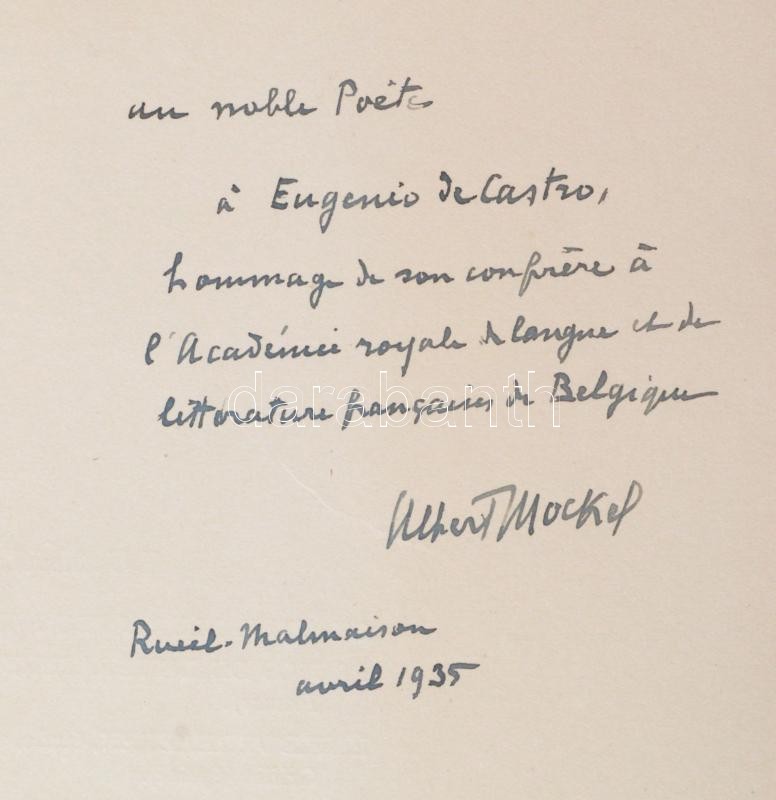 au noble Poète
à Eugenio de Castro,
hommage de son confrère à
l'Académie royale de langue et de
littérature françaises de Belgique
darabanth
Albert Mockel
Rueil-Malmaison
avril 1935